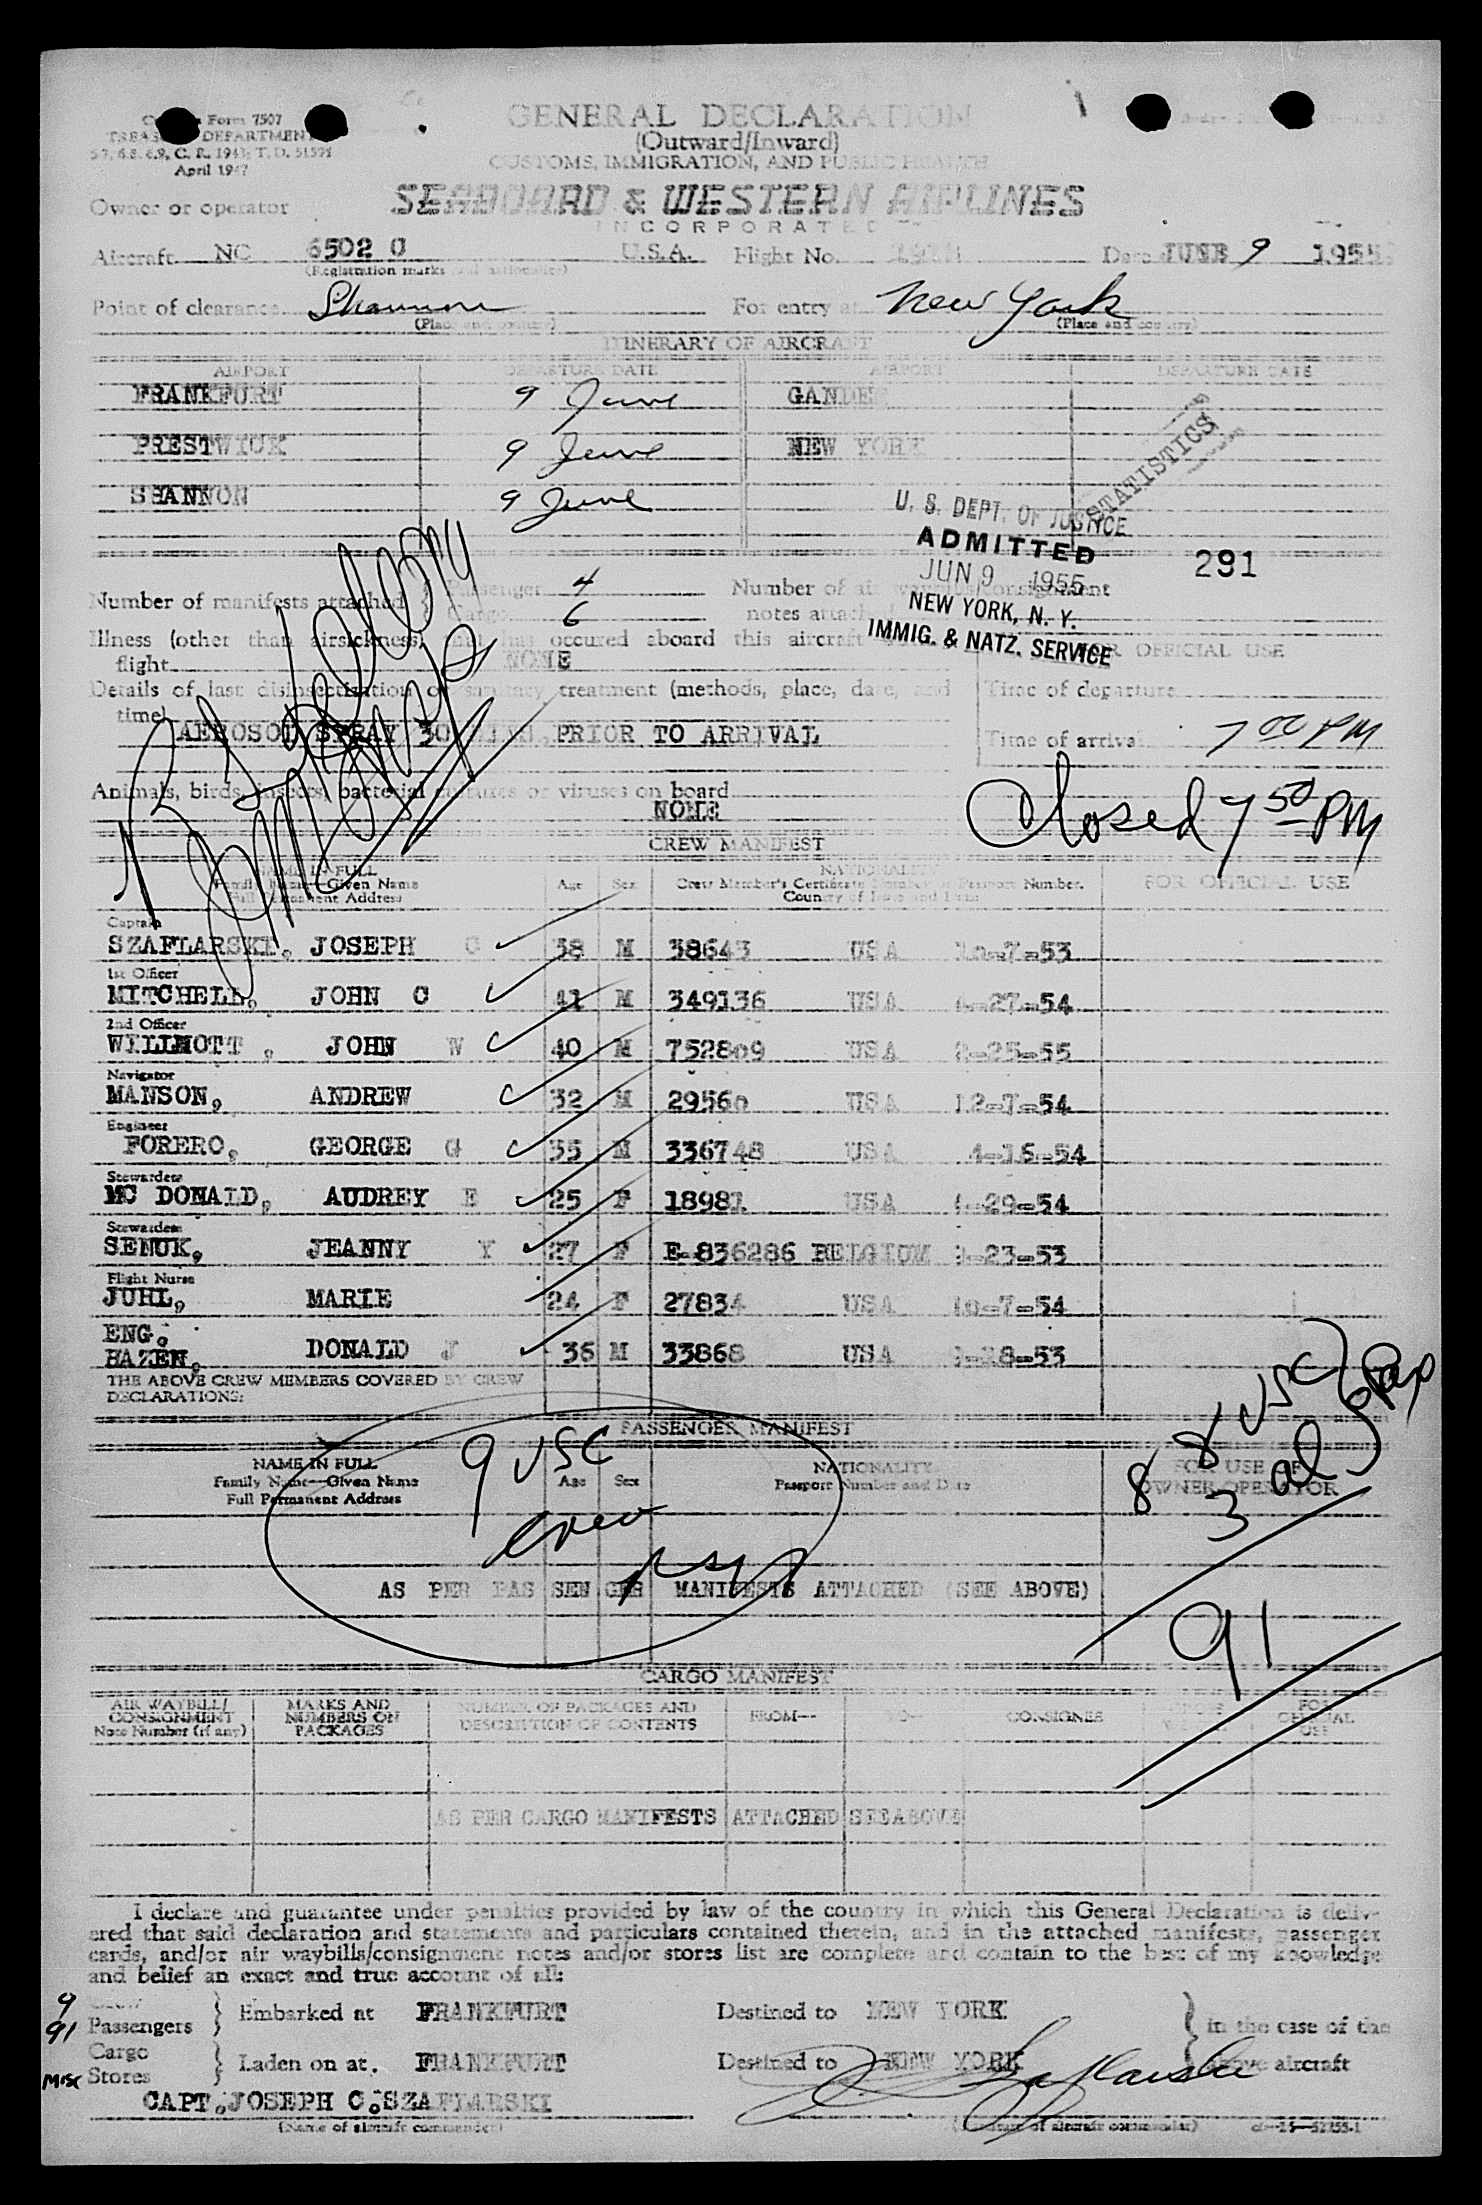 Form 7507
TREASURY DEPARTMENT
5.7, 6.8, 6.9, C. R. 1943; T. D. 51595
April 1947
GENERAL DECLARATION
(Outward/Inward)
CUSTOMS, IMMIGRATION, AND PUBLIC HEALTH
Owner or operator SEABOARD & WESTERN AIRLINES
INCORPORATED
Aircraft NC 6502 C U.S.A. Flight No. Date JUNE 9 1955
(Registration marks and nationality)
Point of clearance Shannon For entry at New York
(Place and country) (Place and country)
ITINERARY OF AIRCRAFT
AIRPORT DEPARTURE DATE AIRPORT DEPARTURE DATE
FRANKFURT 9 June GANDER
PRESTWICK 9 June NEW YORK
SHANNON 9 June
STATISTICS
U. S. DEPT. OF JUSTICE
ADMITTED
JUN 9 1955
NEW YORK, N. Y.
IMMIG. & NATZ. SERVICE
291
Number of manifests attached { Passenger 4 Number of air waybills/consignment
Cargo 6 notes attached
Illness (other than airsickness) that has occured aboard this aircraft
flight NONE
FOR OFFICIAL USE
Details of last disinsectization or sanitary treatment (methods, place, date, and Time of departure
time) AEROSOL SPRAY 30 MINS. PRIOR TO ARRIVAL Time of arrival 7 00 PM
Animals, birds, insects, bacterial cultures or viruses on board Closed 7 50 PM
NONE
CREW MANIFEST
NAME IN FULL NATIONALITY
Family Name—Given Name Age Sex Crew Member's Certificate Number or Passport Number. FOR OFFICIAL USE
Full Permanent Address Country of Issue and Date
Captain
SZAFLARSKI, JOSEPH C 38 M 38643 USA 10-7-53
1st Officer
MITCHELL, JOHN C 41 M 349136 USA -27-54
2nd Officer
WILLMOTT, JOHN W 40 M 752809 USA 2-25-55
Navigator
MANSON, ANDREW 32 M 29560 USA 12-7-54
Engineer
FORERO, GEORGE G 35 M 336748 USA 4-16-54
Stewardess
MC DONALD, AUDREY E 25 F 18981 USA -29-54
Stewardess
SENUK, JEANNY Y 27 F E-836286 BELGIUM -23-53
Flight Nurse
JUHL, MARIE 24 F 27834 USA 10-7-54
ENG.
HAZEN, DONALD J 36 M 33868 USA -28-53
THE ABOVE CREW MEMBERS COVERED BY CREW
DECLARATIONS:
PASSENGER MANIFEST
NAME IN FULL NATIONALITY FOR USE OF
Family Name—Given Name Age Sex Passport Number and Date OWNER OPERATOR
Full Permanent Address
9 USC
crew
88 USC
3 al
91
AS PER PASSENGER MANIFESTS ATTACHED (SEE ABOVE)
CARGO MANIFEST
AIR WAYBILL/ MARKS AND NUMBER OF PACKAGES AND FROM— TO— CONSIGNEE FOR
CONSIGNMENT NUMBERS ON DESCRIPTION OF CONTENTS OFFICIAL
Note Number (if any) PACKAGES USE
AS PER CARGO MANIFESTS ATTACHED SEE ABOVE
I declare and guarantee under penalties provided by law of the country in which this General Declaration is deliv-
ered that said declaration and statements and particulars contained therein, and in the attached manifests, passenger
cards, and/or air waybills/consignment notes and/or stores list are complete and contain to the best of my knowledge
and belief an exact and true account of all:
9 Crew
91 Passengers } Embarked at FRANKFURT Destined to NEW YORK } in the case of the
Cargo
MISC Stores } Laden on at. FRANKFURT Destined to NEW YORK above aircraft
CAPT. JOSEPH C. SZAFLARSKI
(Name of aircraft commander) (Signature of aircraft commander)